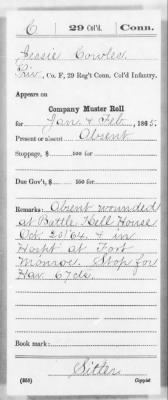 C 29 Col'd. Conn.
Cowles
Pvt, Co. F, 29 Reg't Conn. Col'd Infantry.
Appears on
Company Muster Roll
for Jan. & Feb., 1865.
Present or absent Absent
Stoppage, $ 100 for
Due Gov't, $ 100 for
Remarks: Absent wounded
at Battle Kell House
Oct. 29/64. & in
Hospt at Fort
Monroe. Stop for
Hav. 67cts.
Book mark:
(358) Copyist